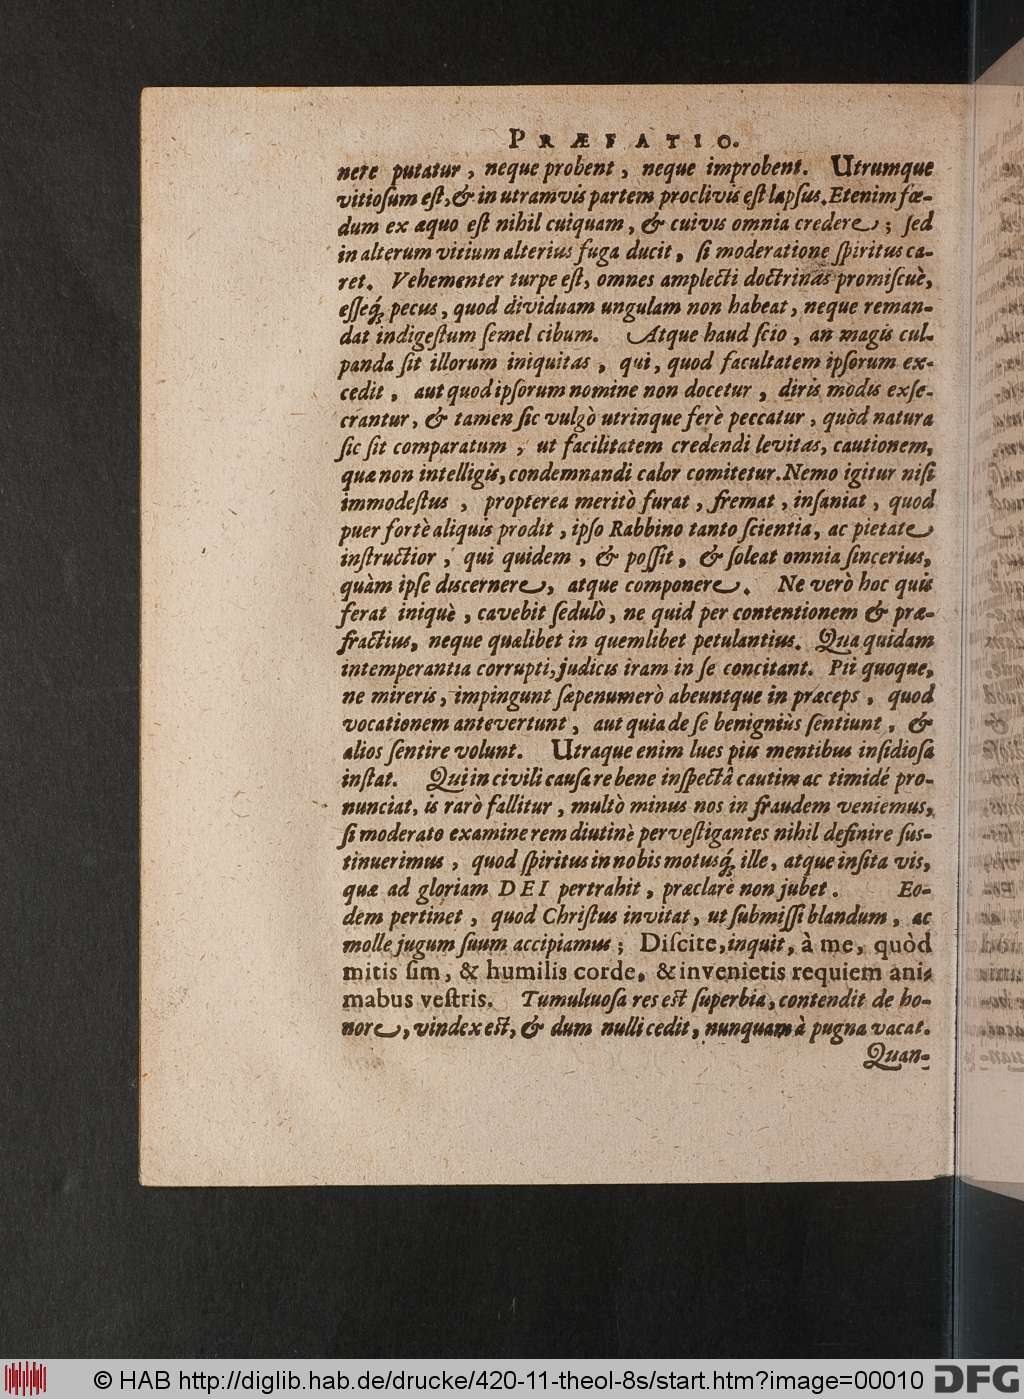 PRÆFATIO.
nere putatur, neque probent, neque improbent. Utrumque
vitioſum eſt, & in utramvis partem proclivis eſt lapſus. Etenim fœ-
dum ex æquo eſt nihil cuiquam, & cuivis omnia credere; ſed
in alterum vitium alterius fuga ducit, ſi moderatione ſpiritus ca-
ret. Vehementer turpe eſt, omnes amplecti doctrinas promiſcuè,
eſſeq́; pecus, quod dividuam ungulam non habeat, neque reman-
dat indigeſtum ſemel cibum. Atque haud ſcio, an magis cul-
panda ſit illorum iniquitas, qui, quod facultatem ipſorum ex-
cedit, aut quod ipſorum nomine non docetur, diris modis exſe-
crantur, & tamen ſic vulgò utrinque ferè peccatur, quòd natura
ſic ſit comparatum, ut facilitatem credendi levitas, cautionem,
quæ non intelligis, condemnandi calor comitetur. Nemo igitur niſi
immodeſtus, propterea meritò furat, fremat, inſaniat, quod
puer fortè aliquis prodit, ipſo Rabbino tanto ſcientia, ac pietate
inſtructior, qui quidem, & poſſit, & ſoleat omnia ſincerius,
quàm ipſe diſcernere, atque componere. Ne verò hoc quis
ferat iniquè, cavebit ſedulò, ne quid per contentionem & præ-
fractius, neque qualibet in quemlibet petulantius. Qua quidam
intemperantia corrupti, judicis iram in ſe concitant. Pii quoque,
ne mireris, impingunt ſæpenumerò abeuntque in præceps, quod
vocationem antevertunt, aut quia de ſe benigniùs ſentiunt, &
alios ſentire volunt. Utraque enim lues piis mentibus inſidioſa
inſtat. Qui in civili cauſa re bene inſpectâ cautim ac timidé pro-
nunciat, is rarò fallitur, multò minus nos in fraudem veniemus,
ſi moderato examine rem diutinè perveſtigantes nihil definire ſus-
tinuerimus, quod ſpiritus in nobis motusq́; ille, atque inſita vis,
quæ ad gloriam DEI pertrahit, præclarè non jubet. Eo-
dem pertinet, quod Chriſtus invitat, ut ſubmiſſi blandum, ac
molle jugum ſuum accipiamus; Diſcite, inquit, à me, quòd
mitis ſim, & humilis corde, & invenietis requiem ani-
mabus veſtris. Tumultuoſa res eſt ſuperbia, contendit de ho-
nore, vindex eſt, & dum nulli cedit, nunquam à pugna vacat.
Quan-
© HAB http://diglib.hab.de/drucke/420-11-theol-8s/start.htm?image=00010
DFG